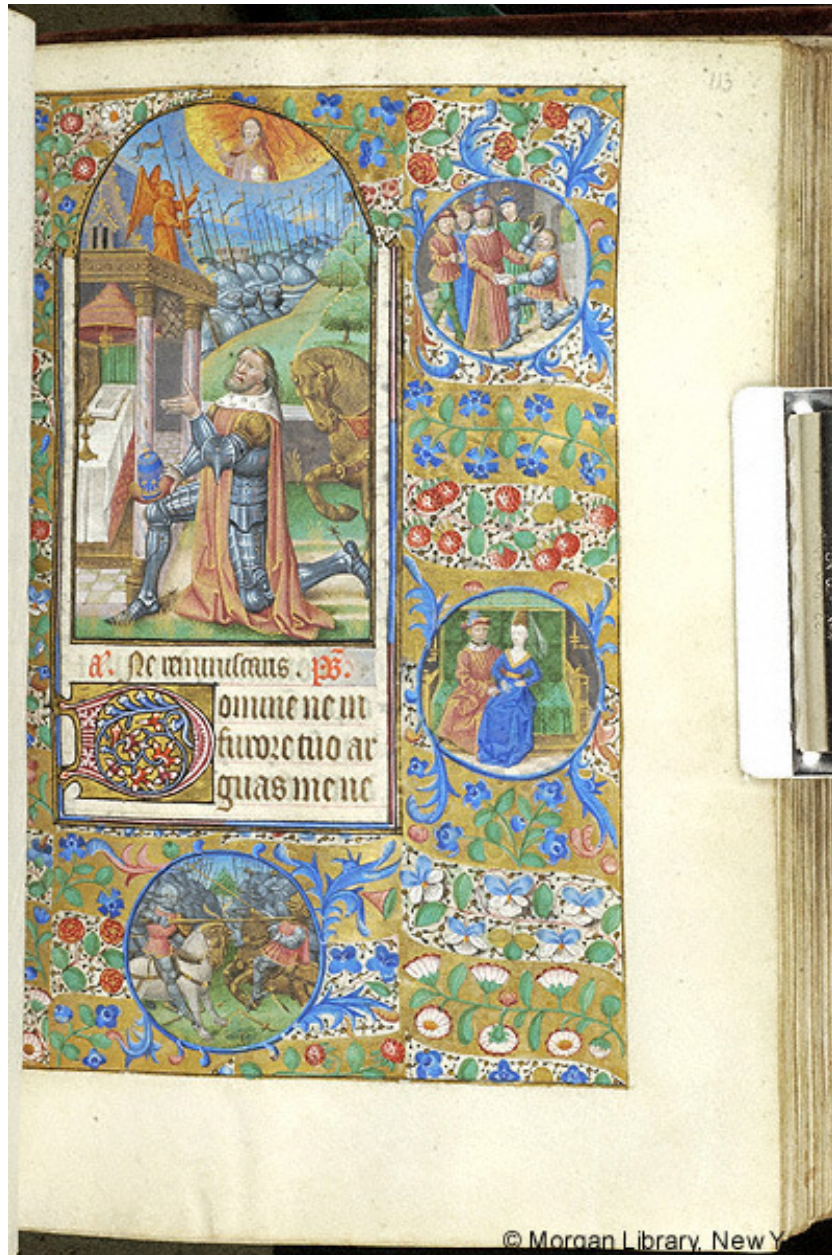 113
a. Ne reminiscaris. ps.
Domine ne in
furore tuo ar
guas me ne
© Morgan Library, New Y